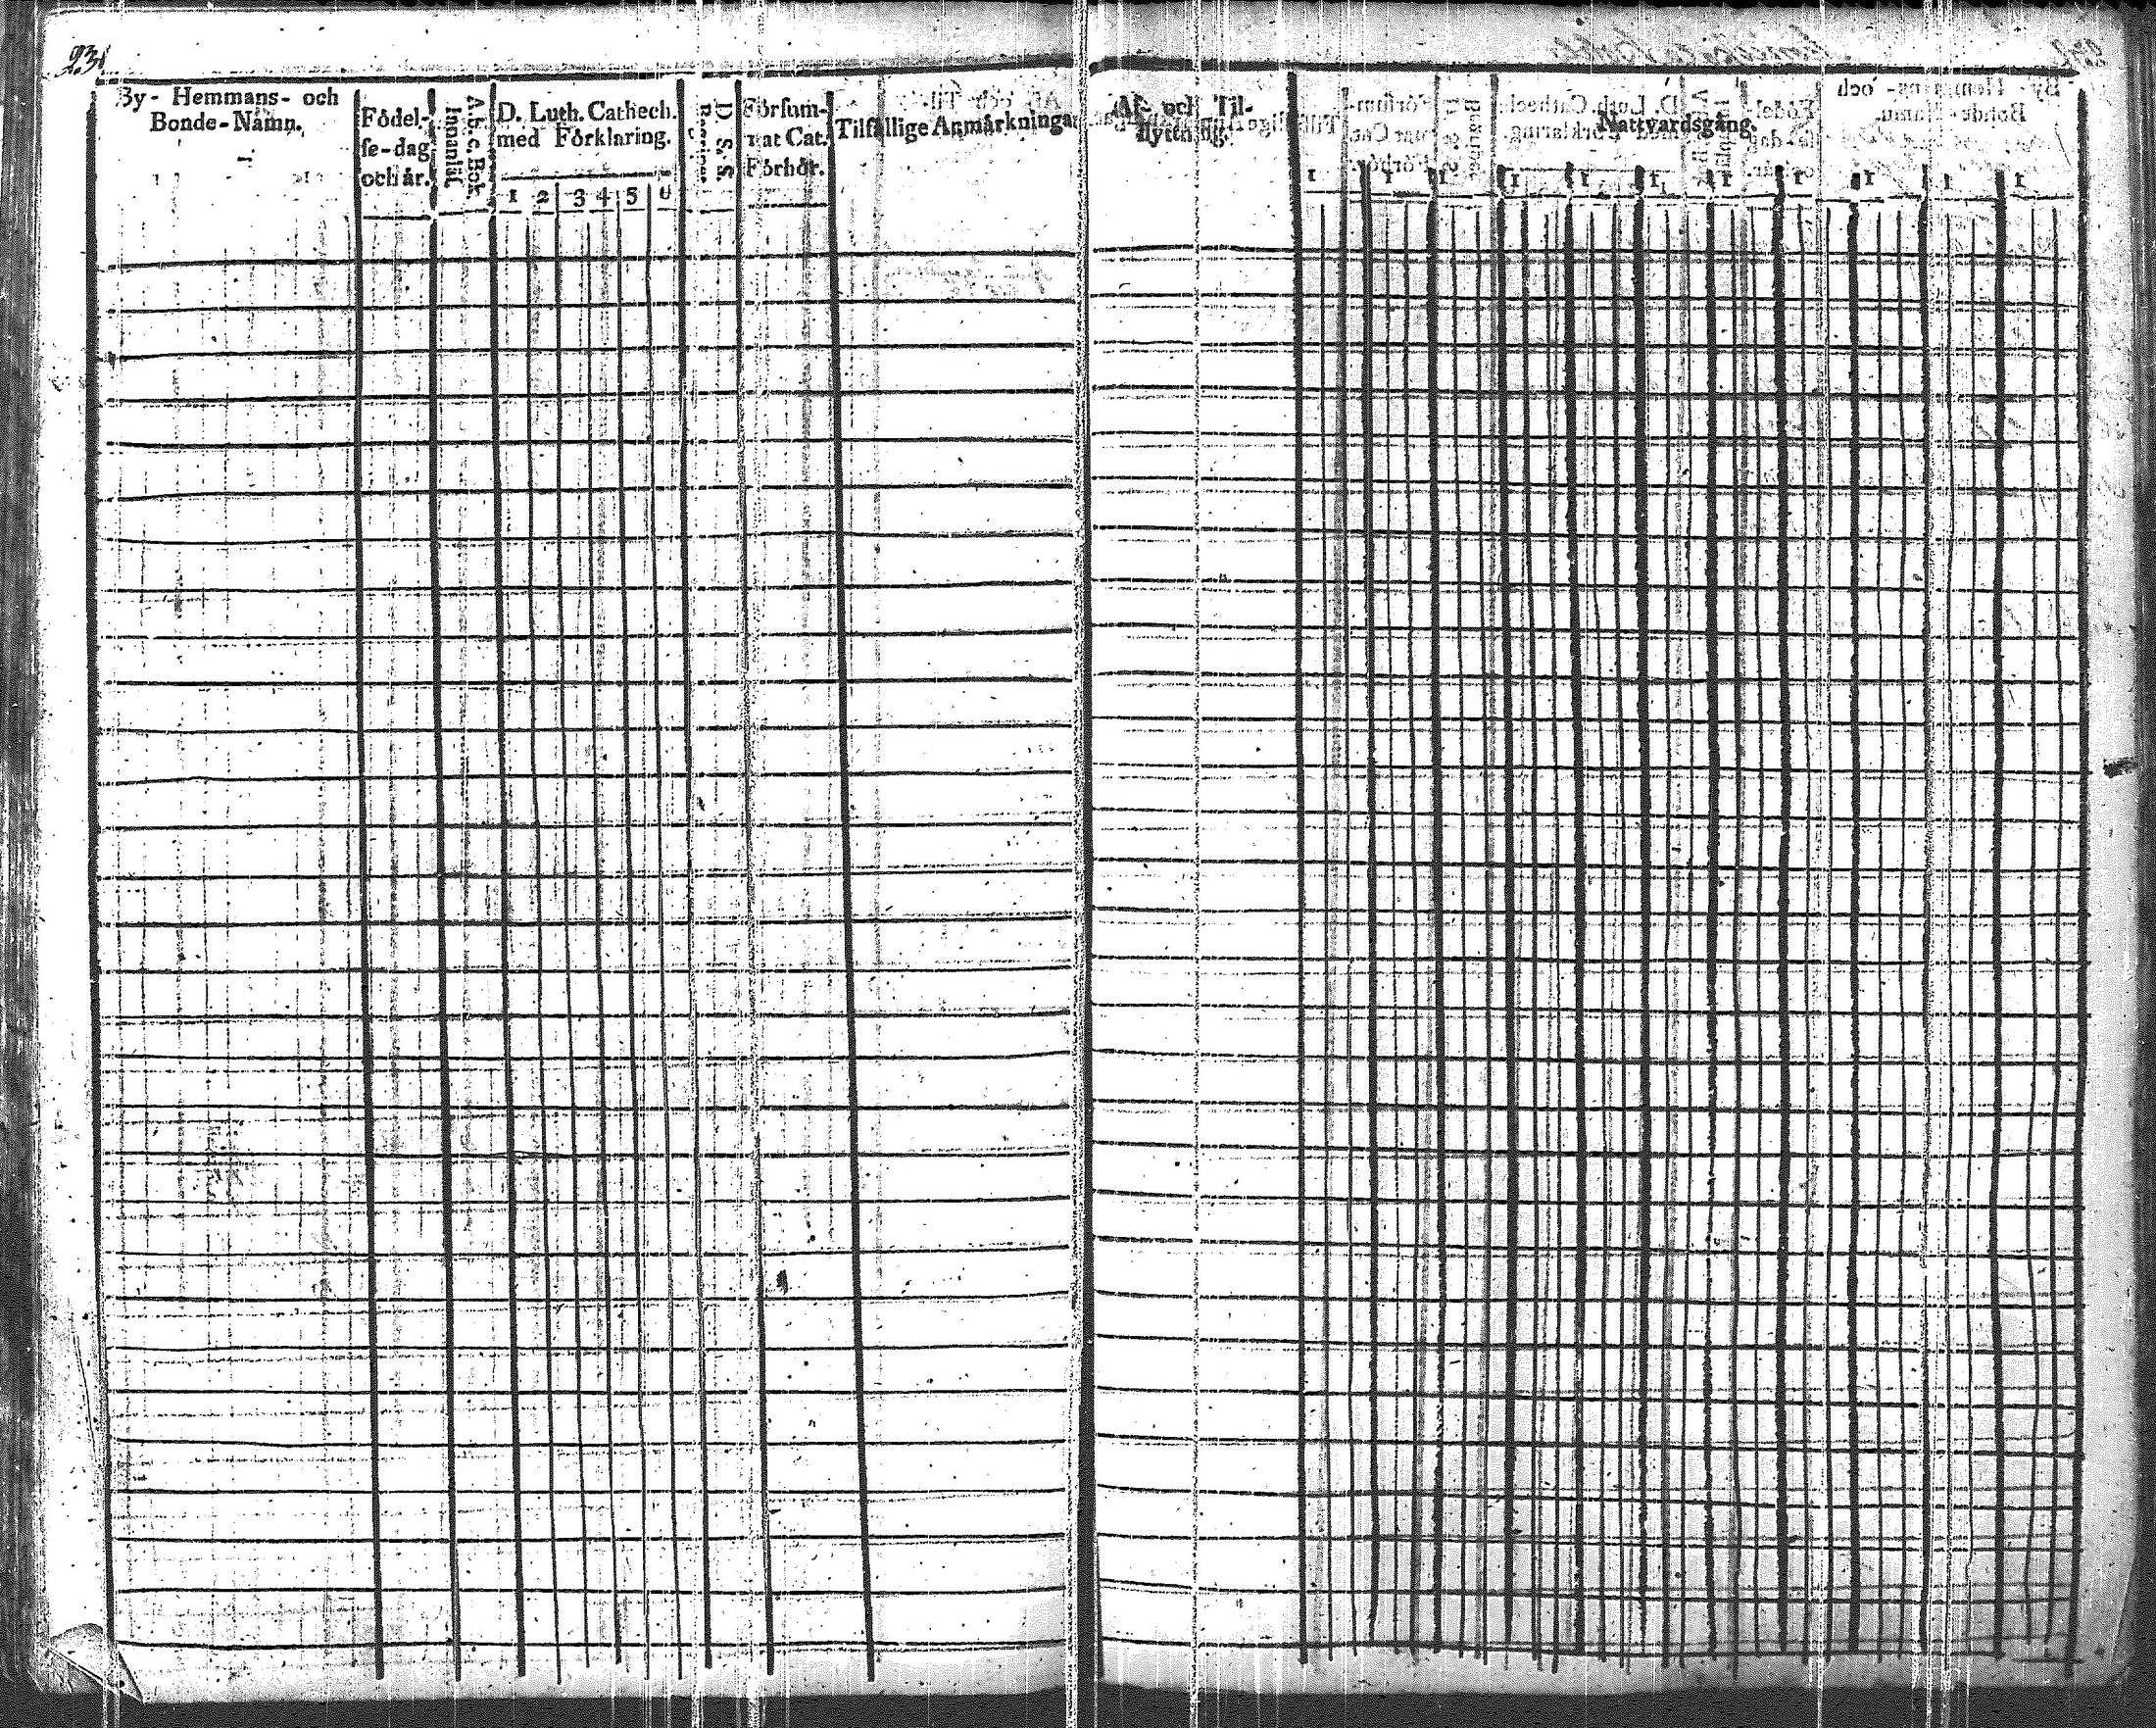 231
By- Hemmans- och
Bonde-Nåmn.
Fódel-
se-dag
och år.
A. b. c. Bok.
Innanläs.
D. Luth. Cathech.
med Fórklaring.
1 2 3 4 5 6
D. S. S.
Begrip.
Fórsum-
nat Cat.
Fórhór.
Tilfällige Anmårkningar
Af- och Til-
flyttning.
Nattvardsgång.
1 1 1 1 1 1 1 1 1 1 1